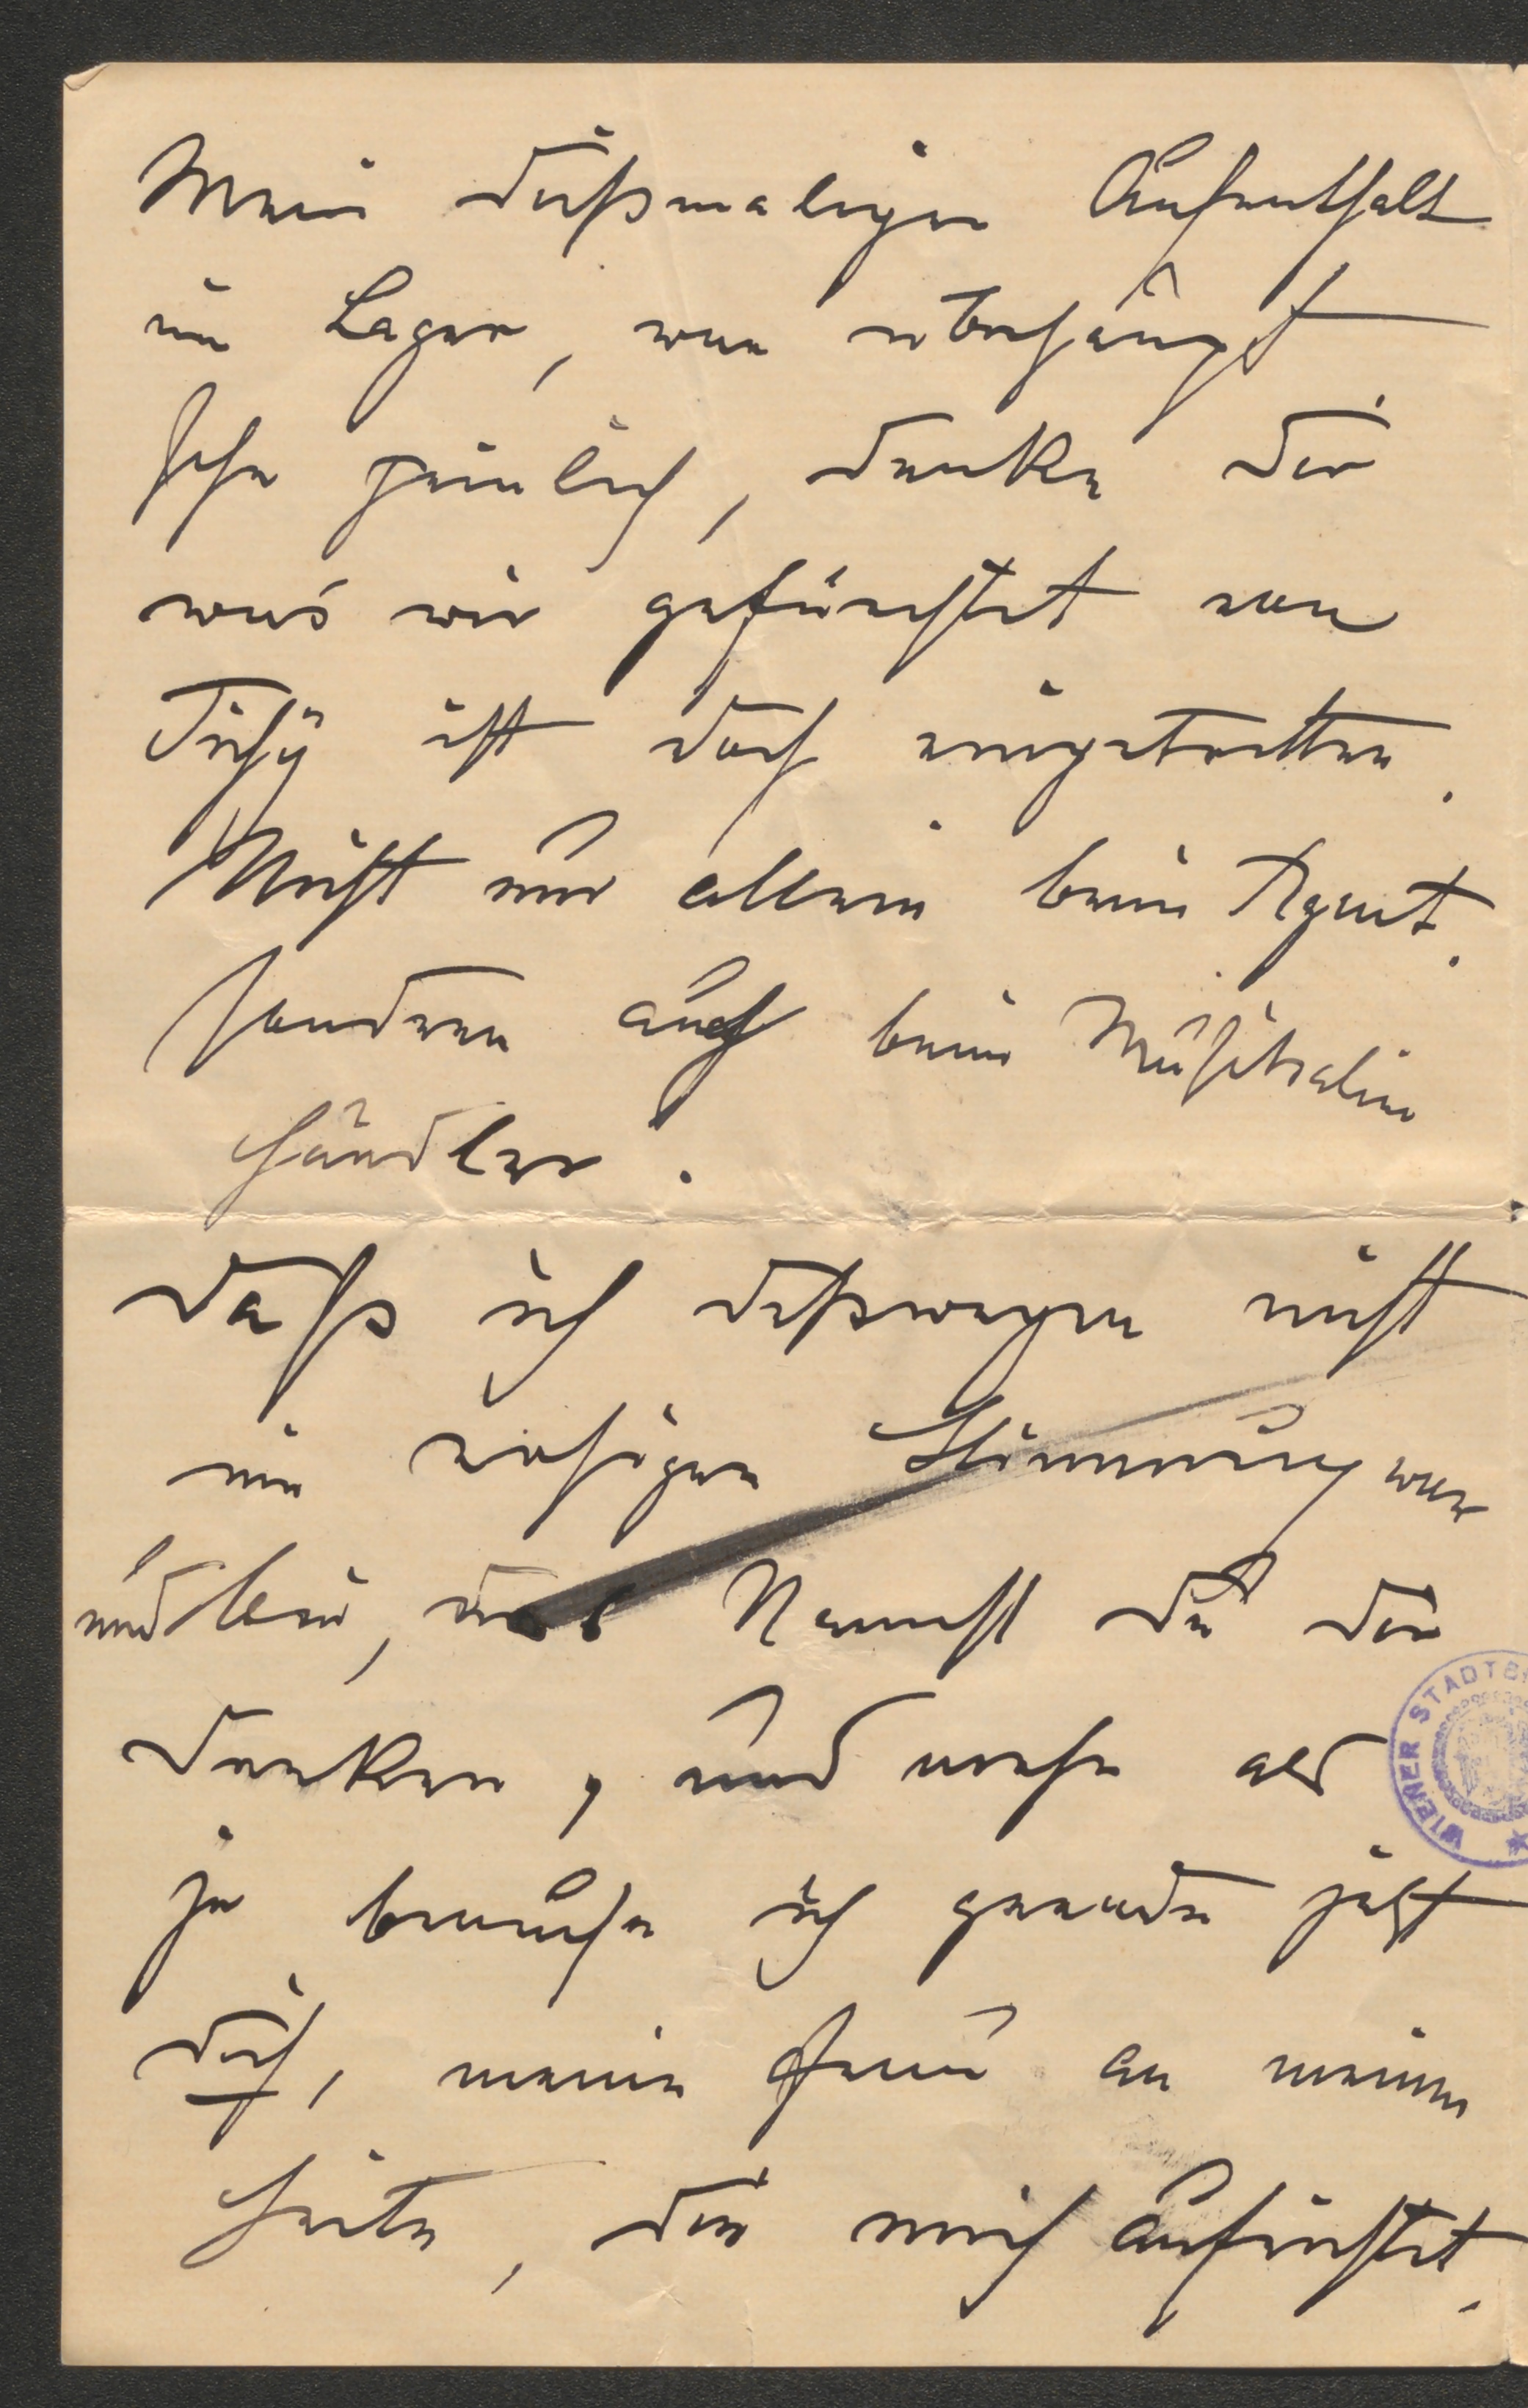 Mein dießmaliger Aufenthalt
im Lager, war überhaupt
sehr peinlich, denke dir
was wir gefürchtet von
Tichÿ ist doch eingetretten.
Nicht nur allein beim Agent.
sondern auch beim Musikalien
händler.
Daß ich deßwegen nicht
in rosigen Stimmung war
und bin, das kannst du dir
denken, und mehr als
je brauche ich gerade jetzt
dich, meine Frau an meiner
Seite, die mich aufrichtet.
WIENER STADTB